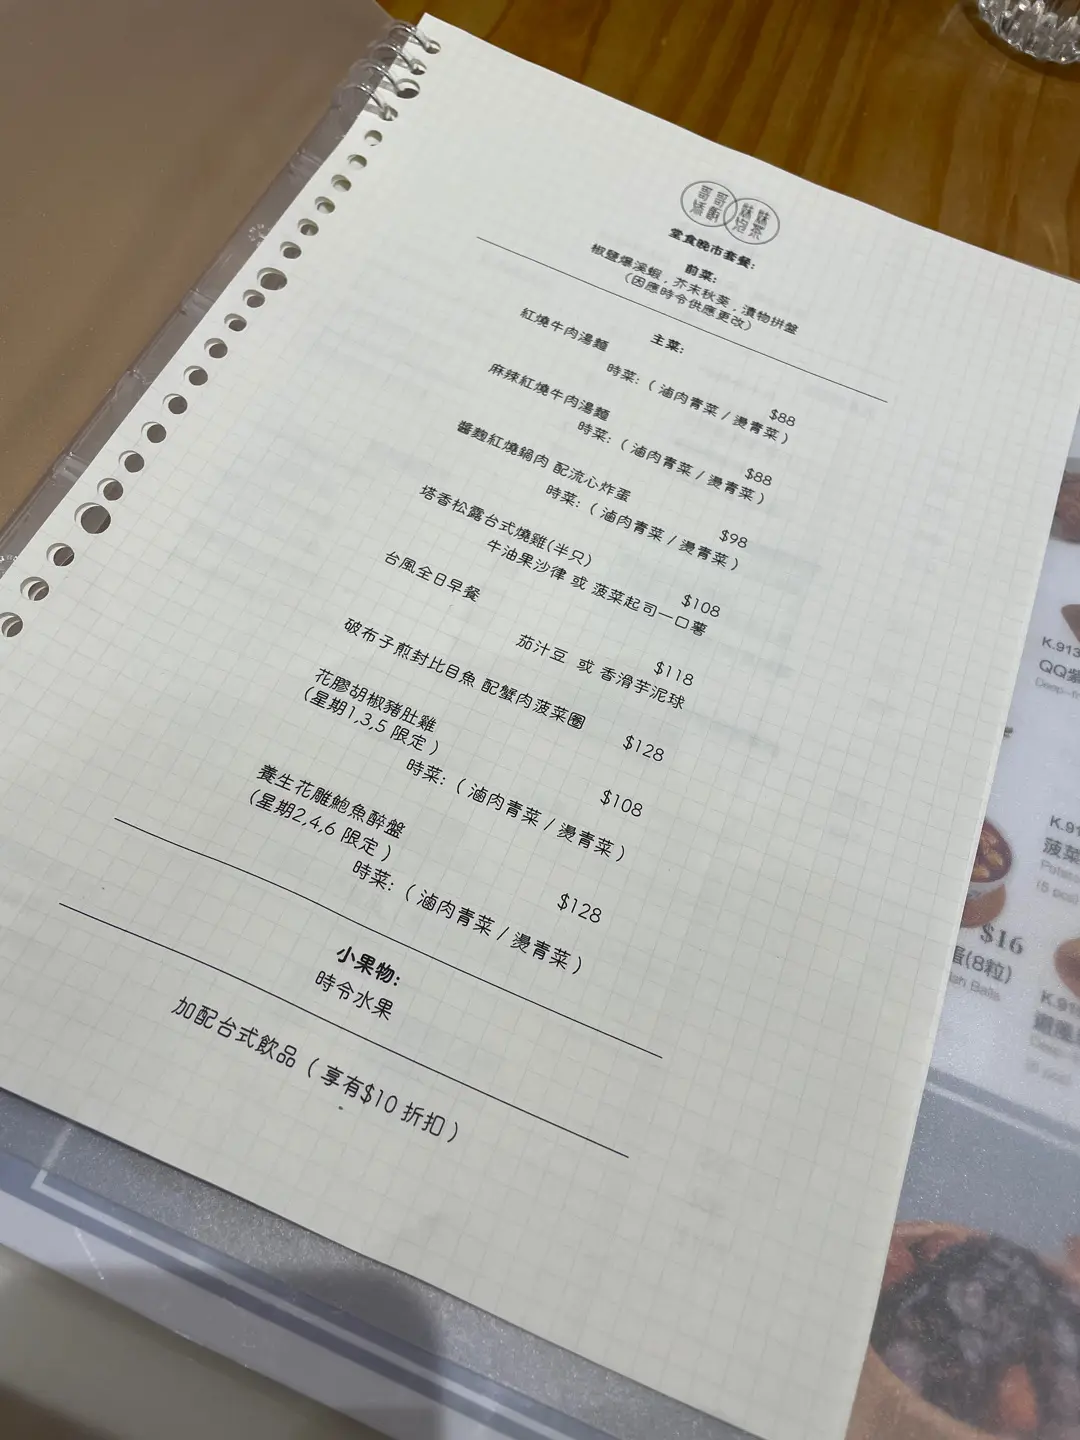 哥哥 妹妹
添飯 泡茶
堂食晚市套餐:
前菜:
椒鹽爆溪蝦，芥末秋葵，漬物拼盤
(因應時令供應更改)
主菜:
紅燒牛肉湯麵 $88
時菜:（滷肉青菜 / 燙青菜）
麻辣紅燒牛肉湯麵 $88
時菜:（滷肉青菜 / 燙青菜）
醬麴紅燒鍋肉 配流心炸蛋 $98
時菜:（滷肉青菜 / 燙青菜）
塔香松露台式燒雞(半只) $108
牛油果沙律 或 菠菜起司一口薯
台風全日早餐 $118
茄汁豆 或 香滑芋泥球
破布子煎封比目魚 配蟹肉菠菜圈 $128
花膠胡椒豬肚雞 $108
(星期1,3,5 限定）
時菜:（滷肉青菜 / 燙青菜）
養生花雕鮑魚醉盤 $128
(星期2,4,6 限定）
時菜:（滷肉青菜 / 燙青菜）
小果物:
時令水果
加配台式飲品（享有$10 折扣）
K.913
QQ紫
Deep-f
K.91
菠菜
Potato
(5 pcs)
$16
蛋(8粒)
Balls
K.91